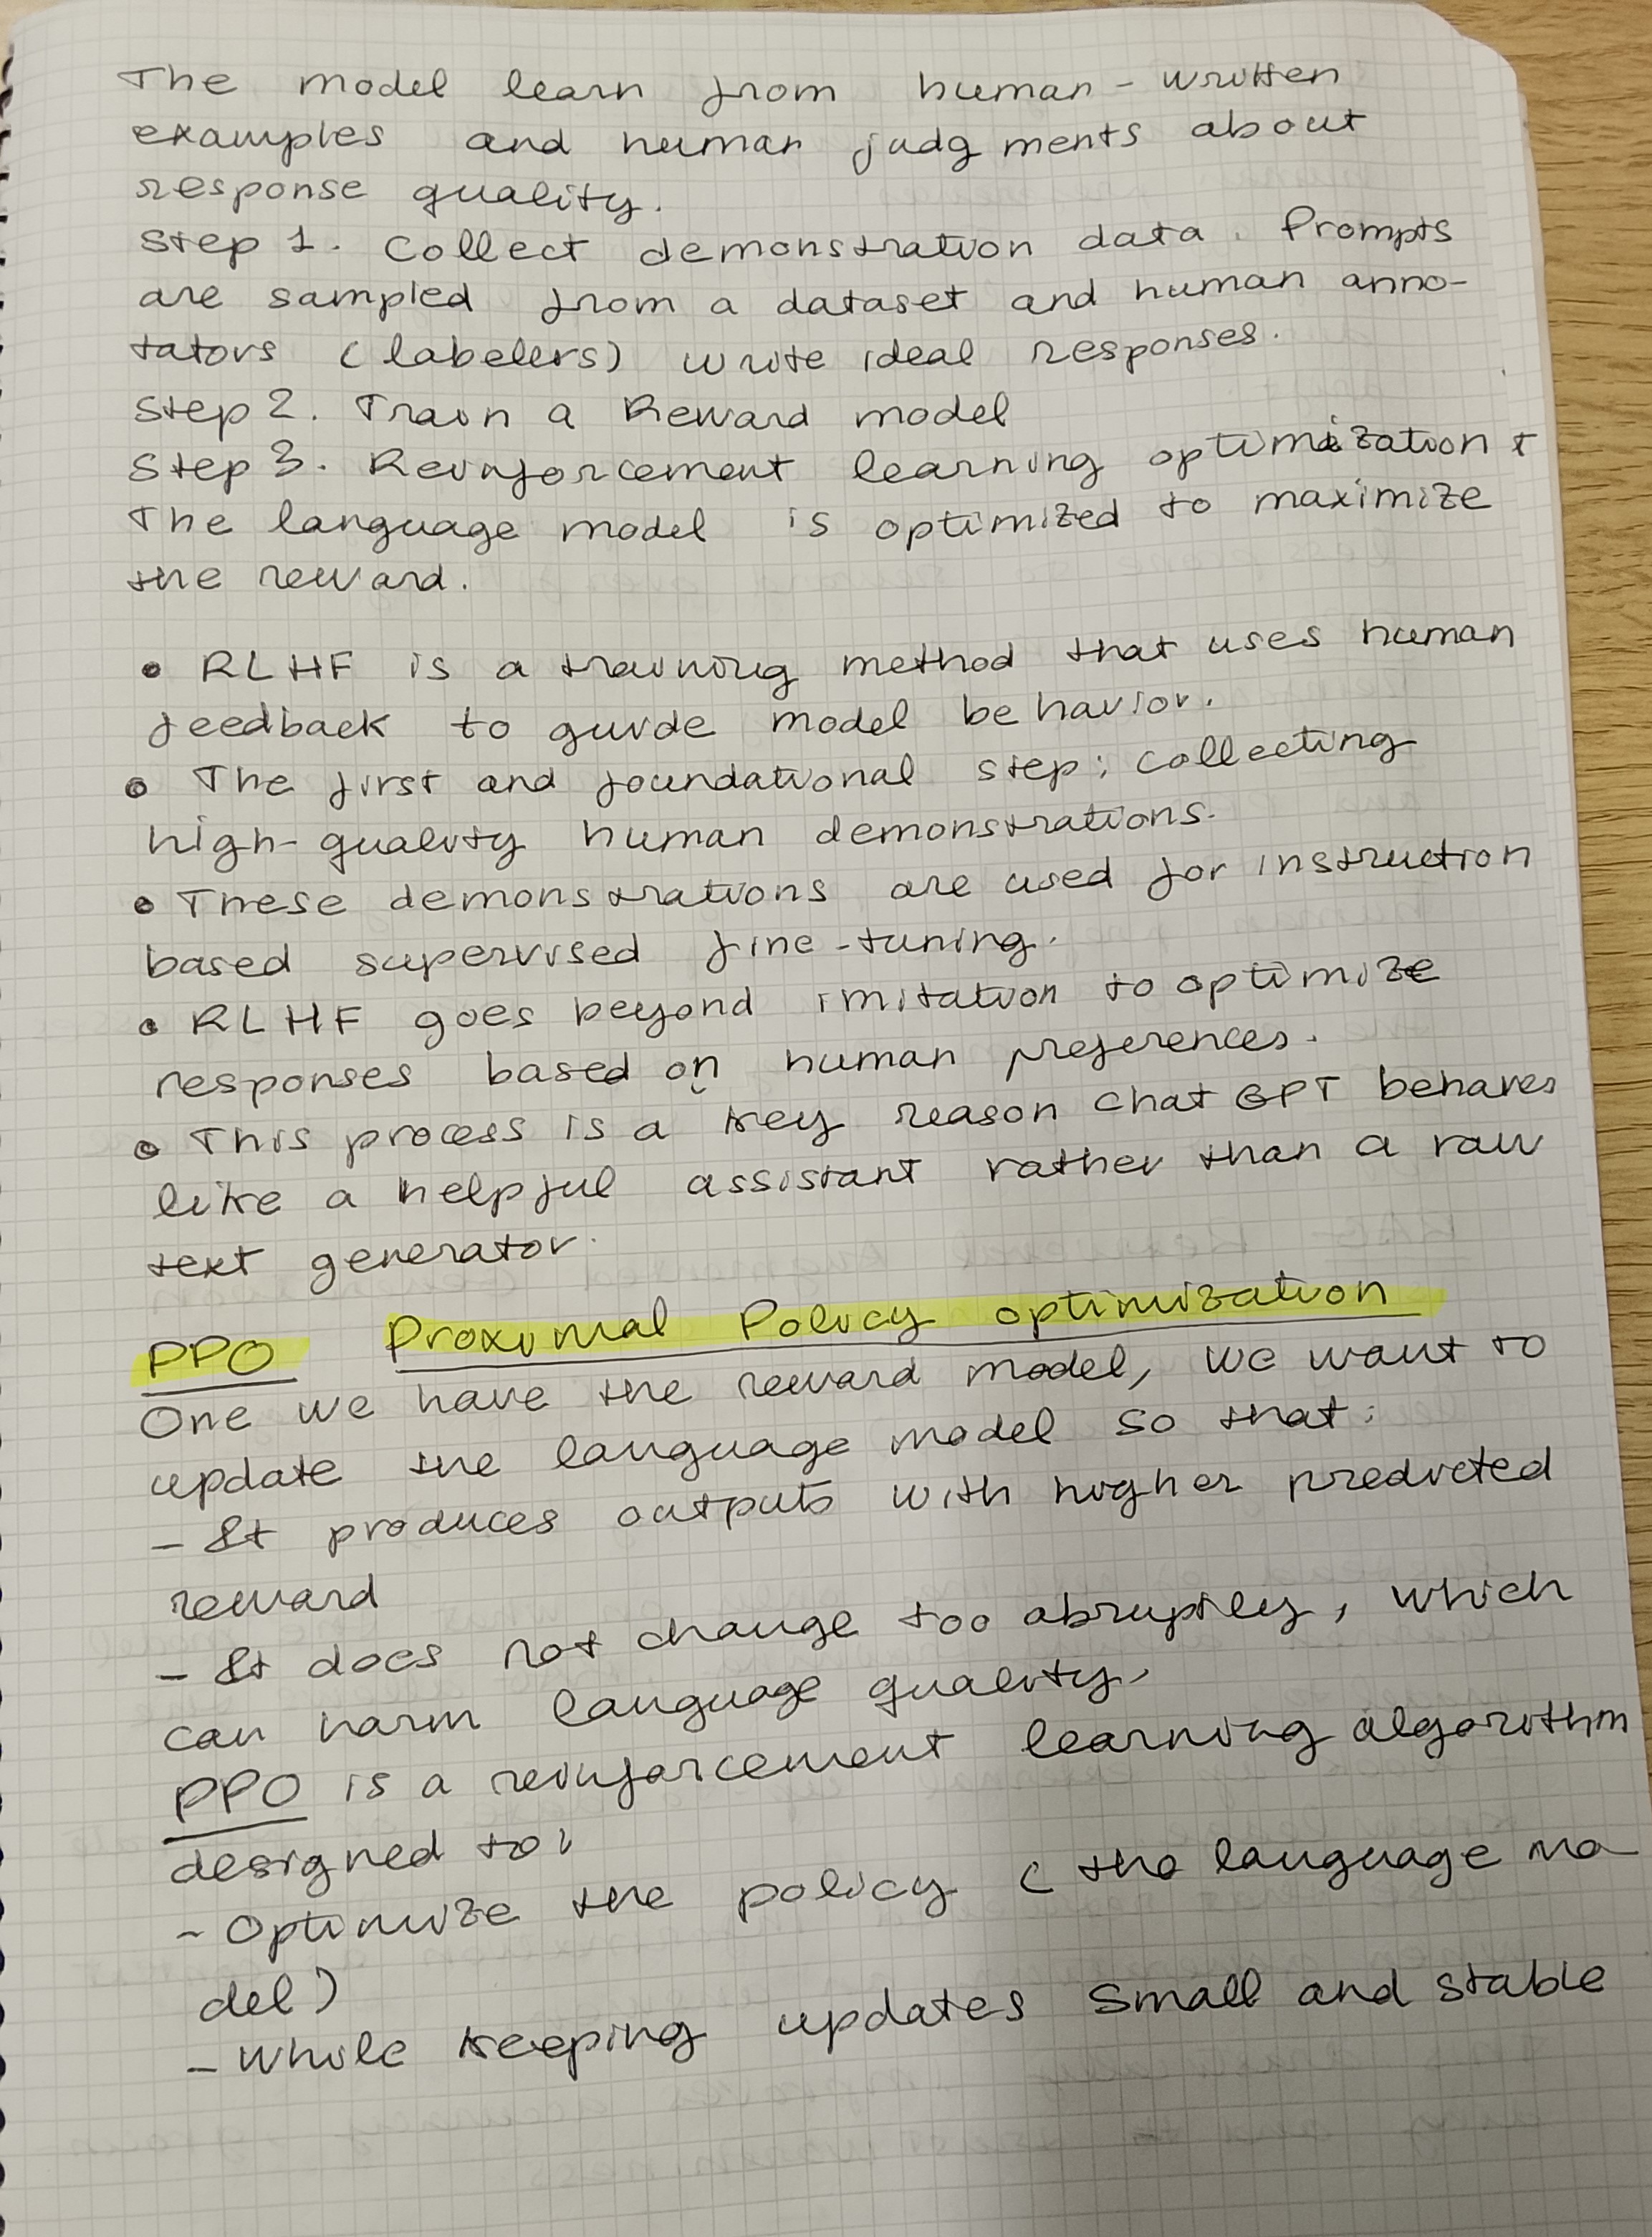 The model learn from human - written
examples and human judgments about
response quality.
Step 1. Collect demonstration data. Prompts
are sampled from a dataset and human anno-
tators (labelers) write ideal responses.
Step 2. Train a Reward model
Step 3. Reinforcement learning optimization
The language model is optimized to maximize
the reward.
• RLHF is a training method that uses human
feedback to guide model behavior.
• The first and foundational step: collecting
high-quality human demonstrations.
• These demonstrations are used for instruction
based supervised fine-tuning.
• RLHF goes beyond imitation to optimize
responses based on human preferences.
• This process is a key reason chat GPT behaves
like a helpful assistant rather than a raw
text generator.
PPO Proximal Policy optimization
One we have the reward model, we want to
update the language model so that:
- It produces outputs with higher predicted
reward
- It does not change too abruptly, which
can harm language quality.
PPO is a reinforcement learning algorithm
designed to:
- Optimize the policy ( the language mo
del)
- While keeping updates small and stable